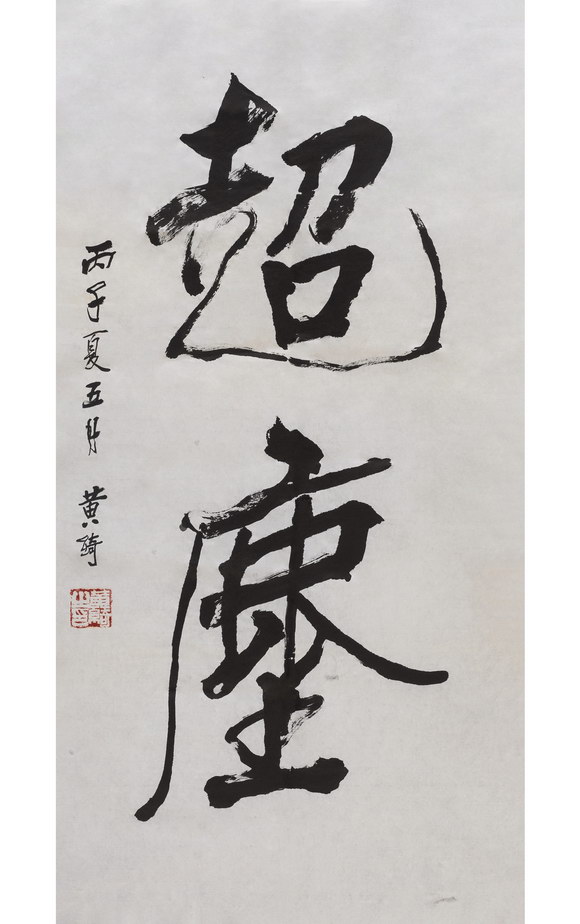 超塵
丙子夏五月 黄綺